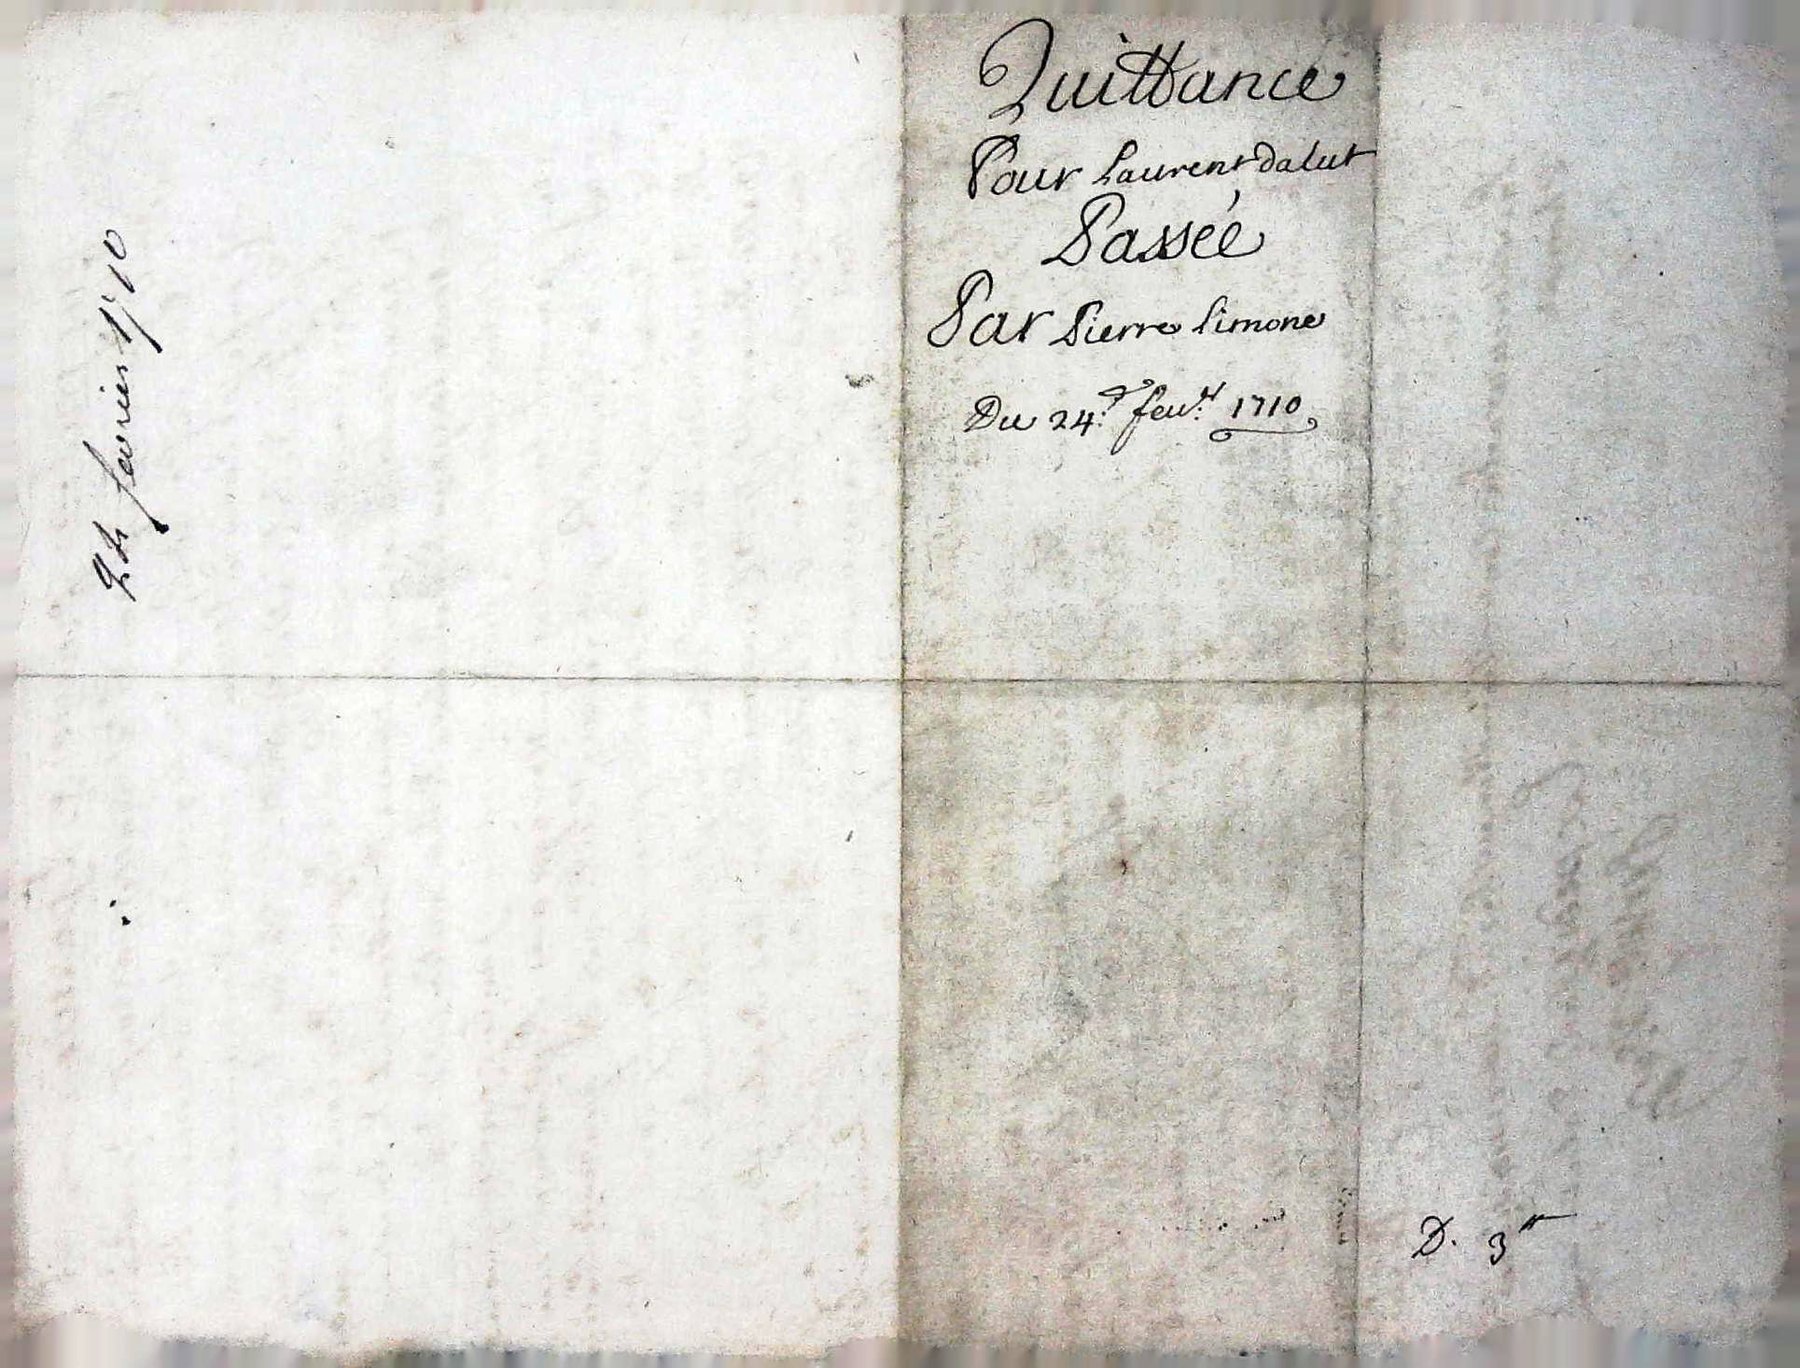 Quittance
Pour Laurent Dalut
Passée
Par Pierre Limone
Du 24.e feu.er 1710
24 fevrier 1710
D. 3tt